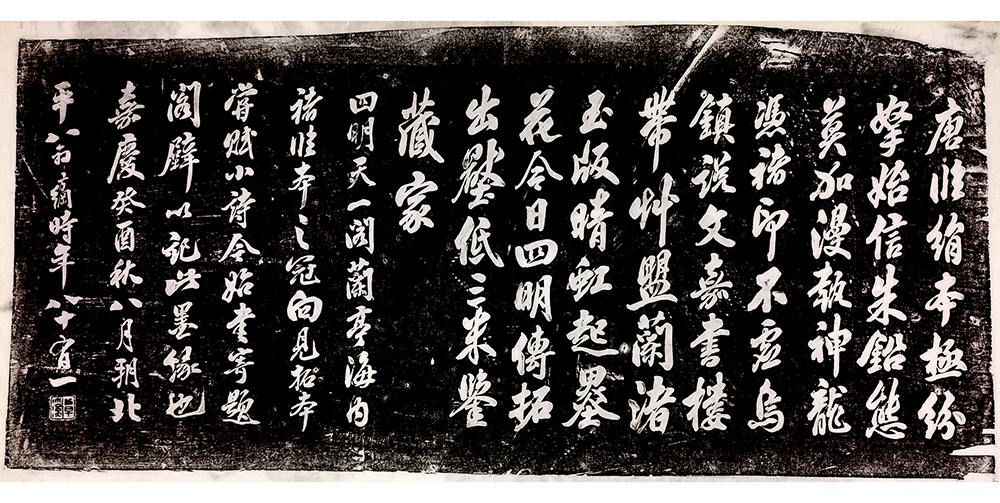 唐臨絹本極紛
拏始信朱鉛態
莫加漫執神龍
憑褚印不虛烏
鎮說文嘉書樓
帶艸盟蘭渚
玉版晴虹起墨
花今日四明傳拓
出壓低三米鑒
藏家
四明天一閣蘭亭海内
褚臨本之冠向見拓本
嘗賦小詩今始書寄題
閣壁以記此墨緣也
嘉慶癸酉秋八月朔北
平翁方綱時年八十有一